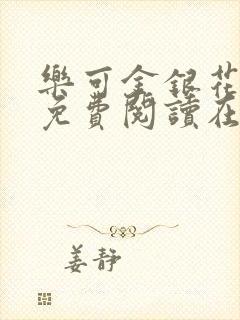 樂可金銀花
免費閱讀在
姜靜